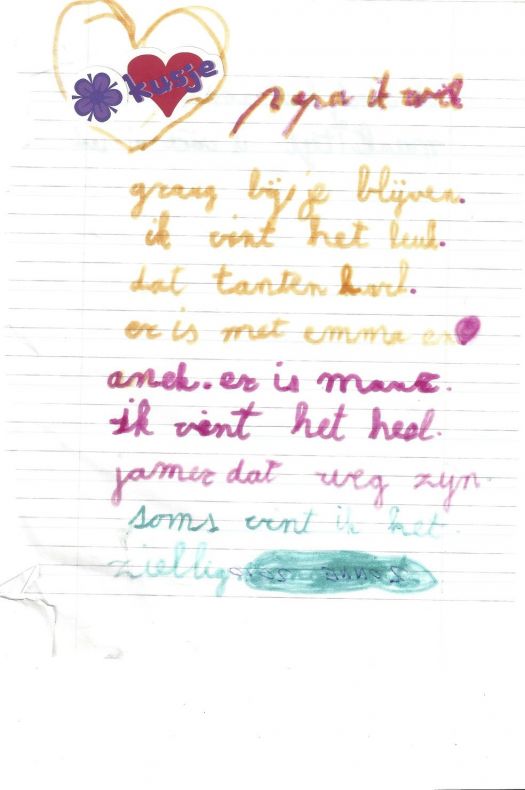 kusje
papa ik wil
graag bij je blijven.
ik vint het leuk.
dat tanten karl.
er is met emma en
anek. er is maar.
ik vint het heel.
jamer dat weg zijn.
soms vint ik het.
ziellig